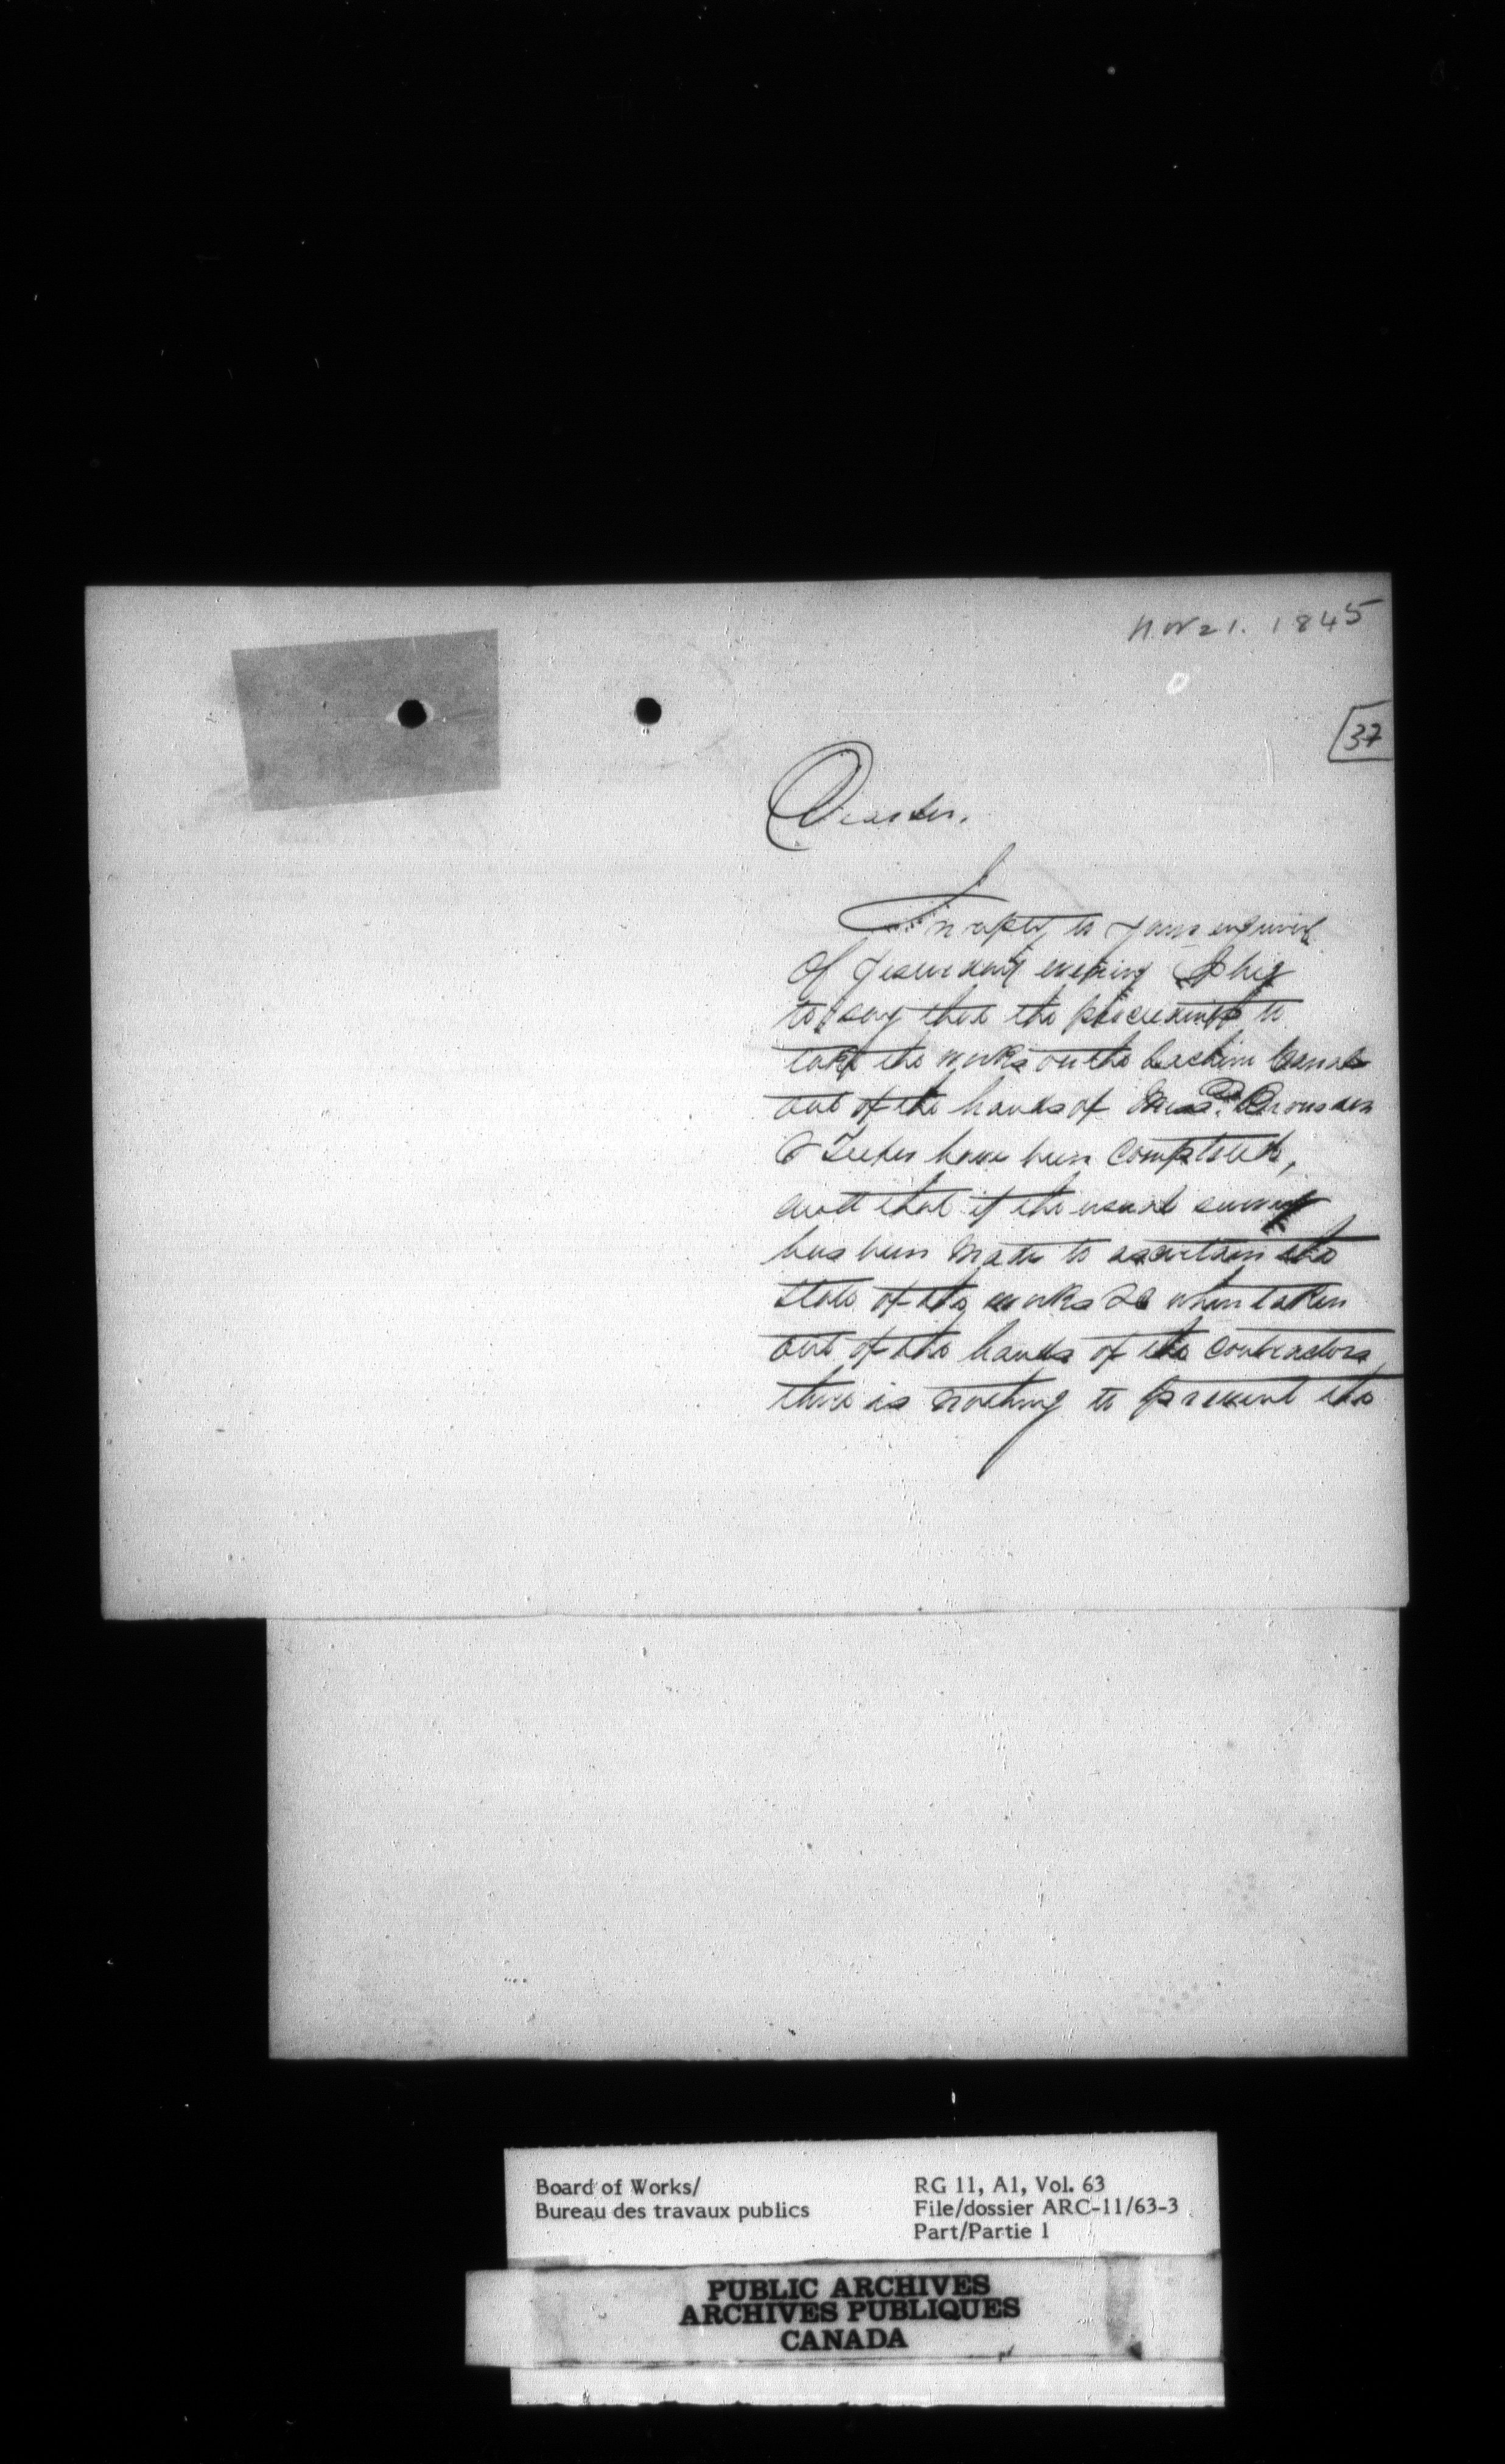 Nov 21. 1845
37
Dear Sir,
In reply to your enquiries
of yesterday evening I beg
to say that the proceedings to
take the works on the Lachine Canal
out of the hands of Messrs.
& have been completed,
and that if the usual survey
has been made to ascertain the
state of the works &c when taken
out of the hands of the contractors
there is nothing to prevent the
Board of Works/
Bureau des travaux publics
RG 11, A1, Vol. 63
File/dossier ARC-11/63-3
Part/Partie 1
PUBLIC ARCHIVES
ARCHIVES PUBLIQUES
CANADA